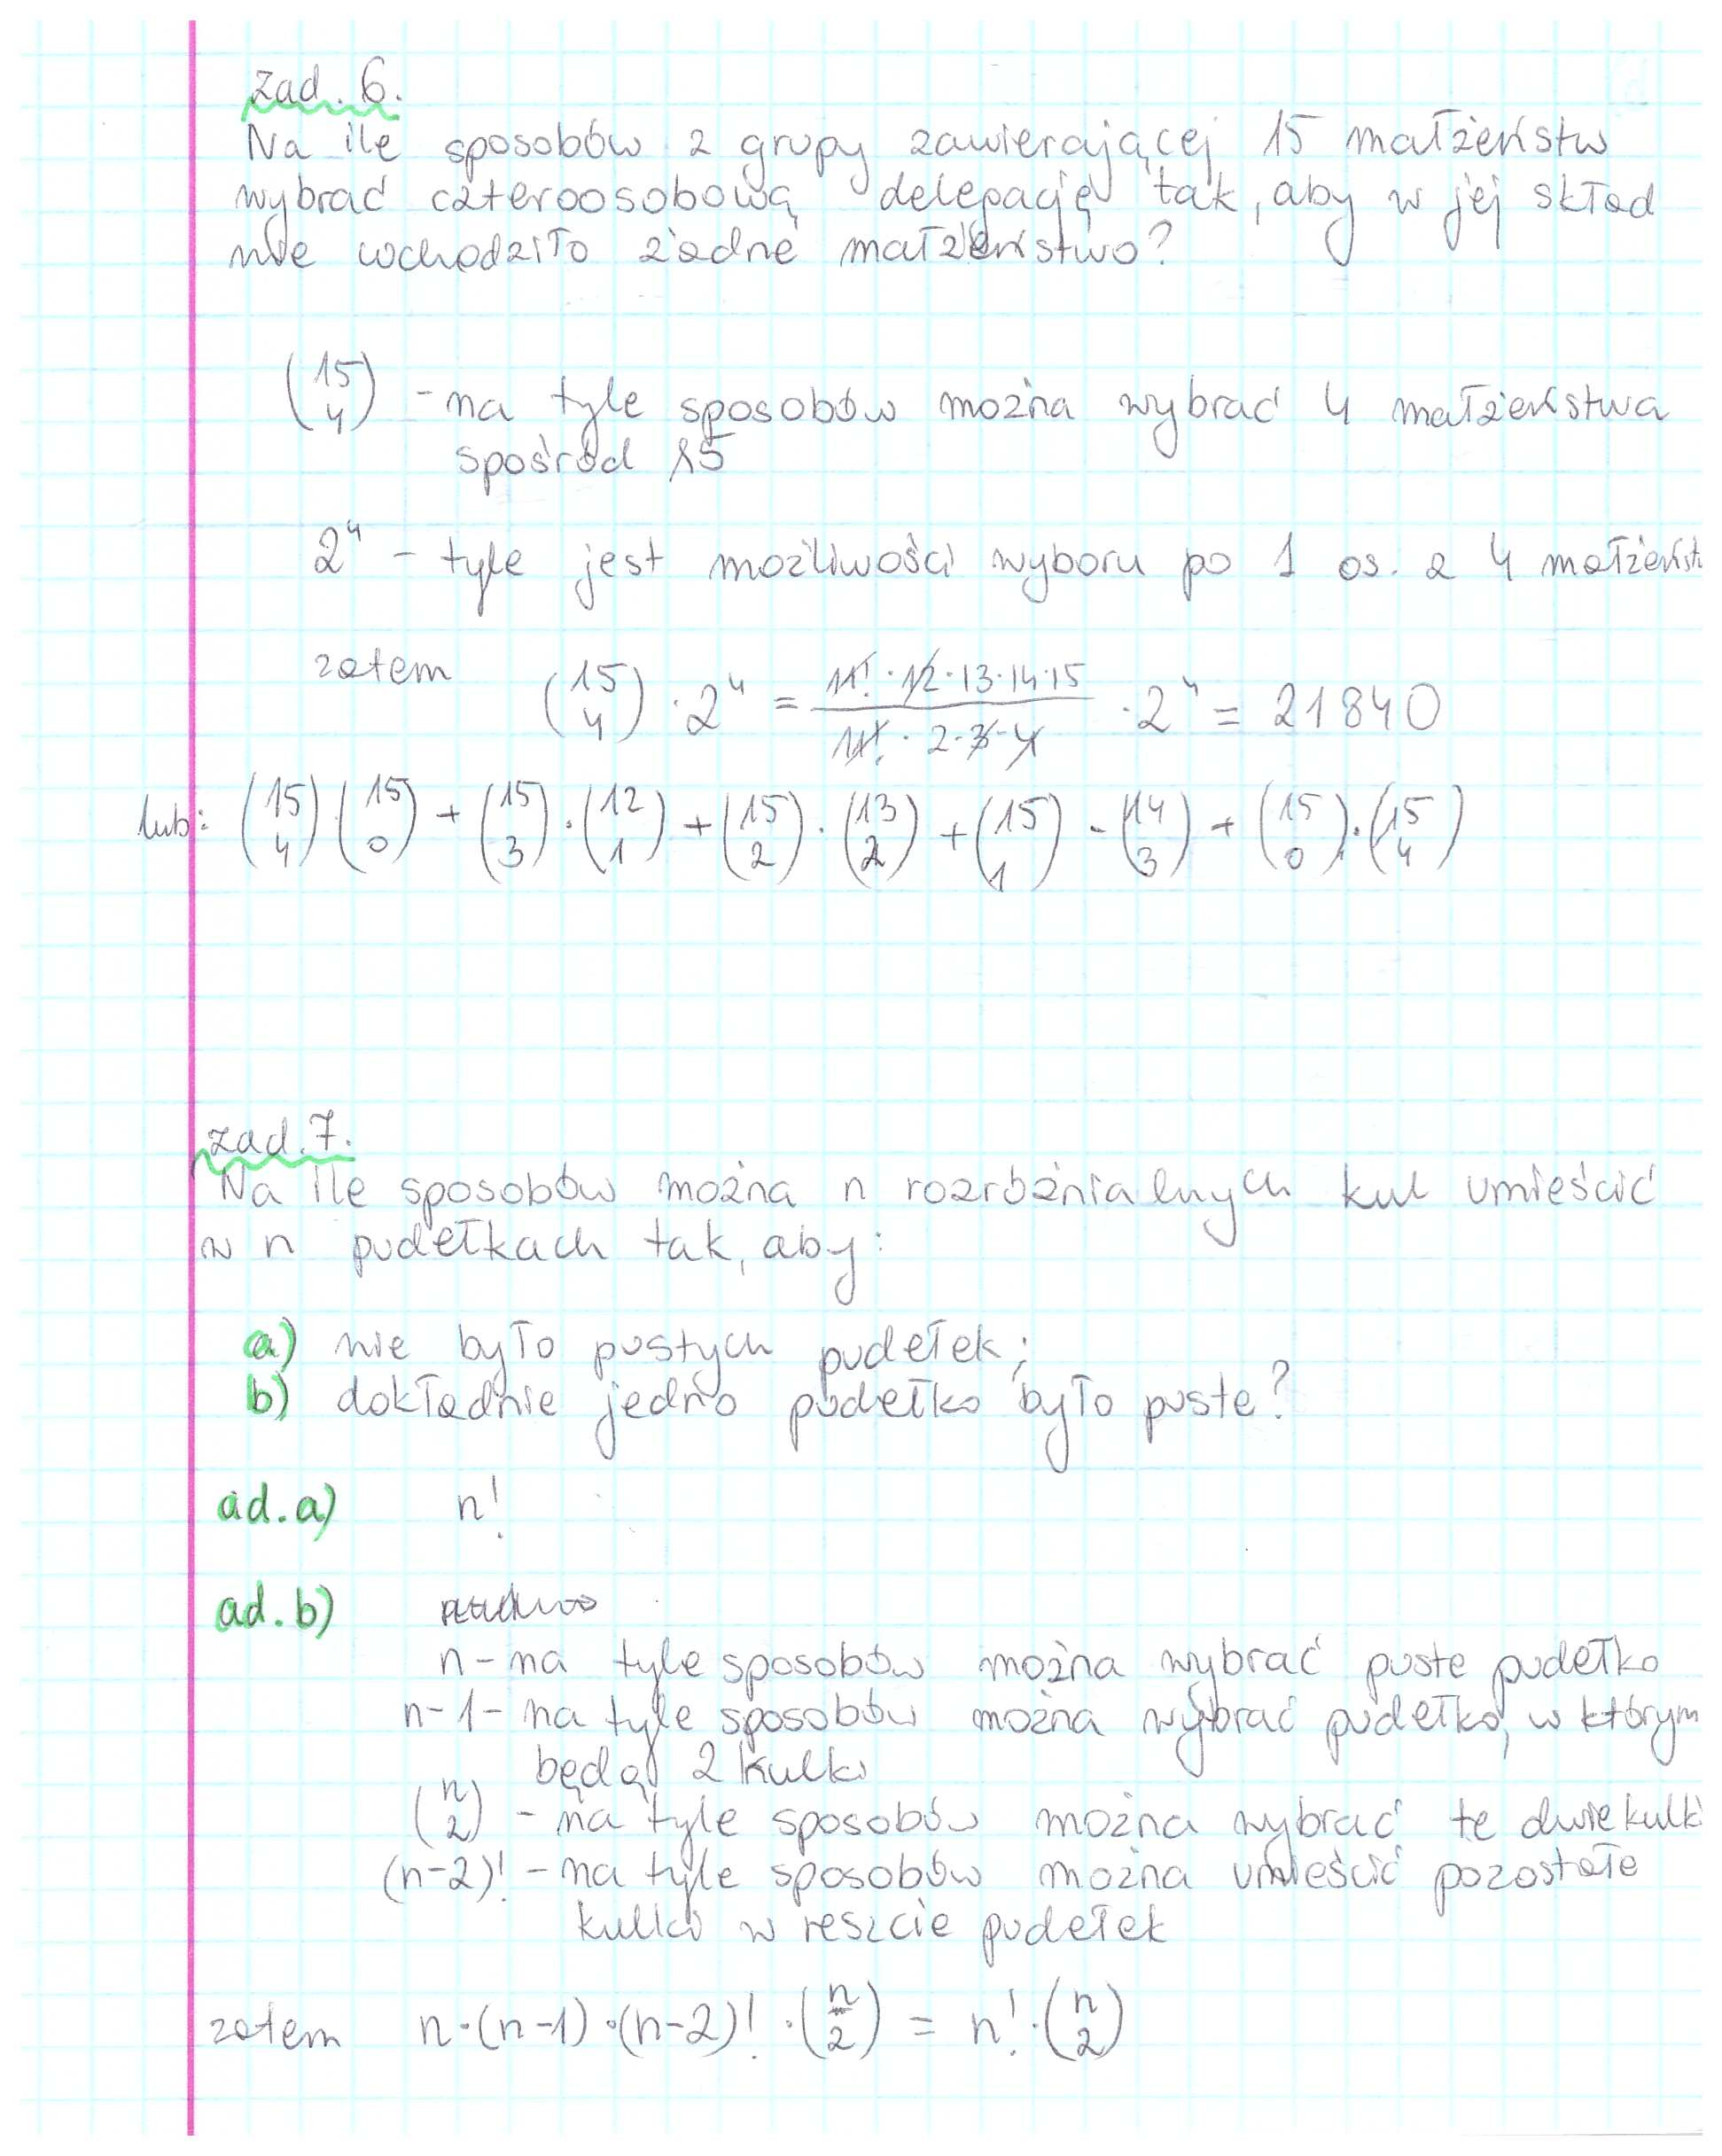 zad. 6.
Na ile sposobów z grupy zawierającej 15 małżeństw
wybrać czteroosobową delegację tak, aby w jej skład
nie wchodziło żadne małżeństwo?
(15 4) - na tyle sposobów można wybrać 4 małżeństwa
spośród 15
2⁴ - tyle jest możliwości wyboru po 1 os. z 4 małżeństw
zatem (15 4) · 2⁴ = 11! · 12 · 13 · 14 · 15 / 11! · 2 · 3 · 4 · 2⁴ = 21840
lub: (15 4) · (15 0) + (15 3) · (12 1) + (15 2) · (13 2) + (15 1) · (14 3) + (15 0) · (15 4)
zad. 7.
Na ile sposobów można n rozróżnialnych kul umieścić
w n pudełkach tak, aby:
a) nie było pustych pudełek;
b) dokładnie jedno pudełko było puste?
ad. a) n!
ad. b)
n - na tyle sposobów można wybrać puste pudełko
n-1 - na tyle sposobów można wybrać pudełko, w którym
będą 2 kulki
(n 2) - na tyle sposobów można wybrać te dwie kulki
(n-2)! - na tyle sposobów można umieścić pozostałe
kulki w reszcie pudełek
zatem n · (n-1) · (n-2)! · (n 2) = n! · (n 2)